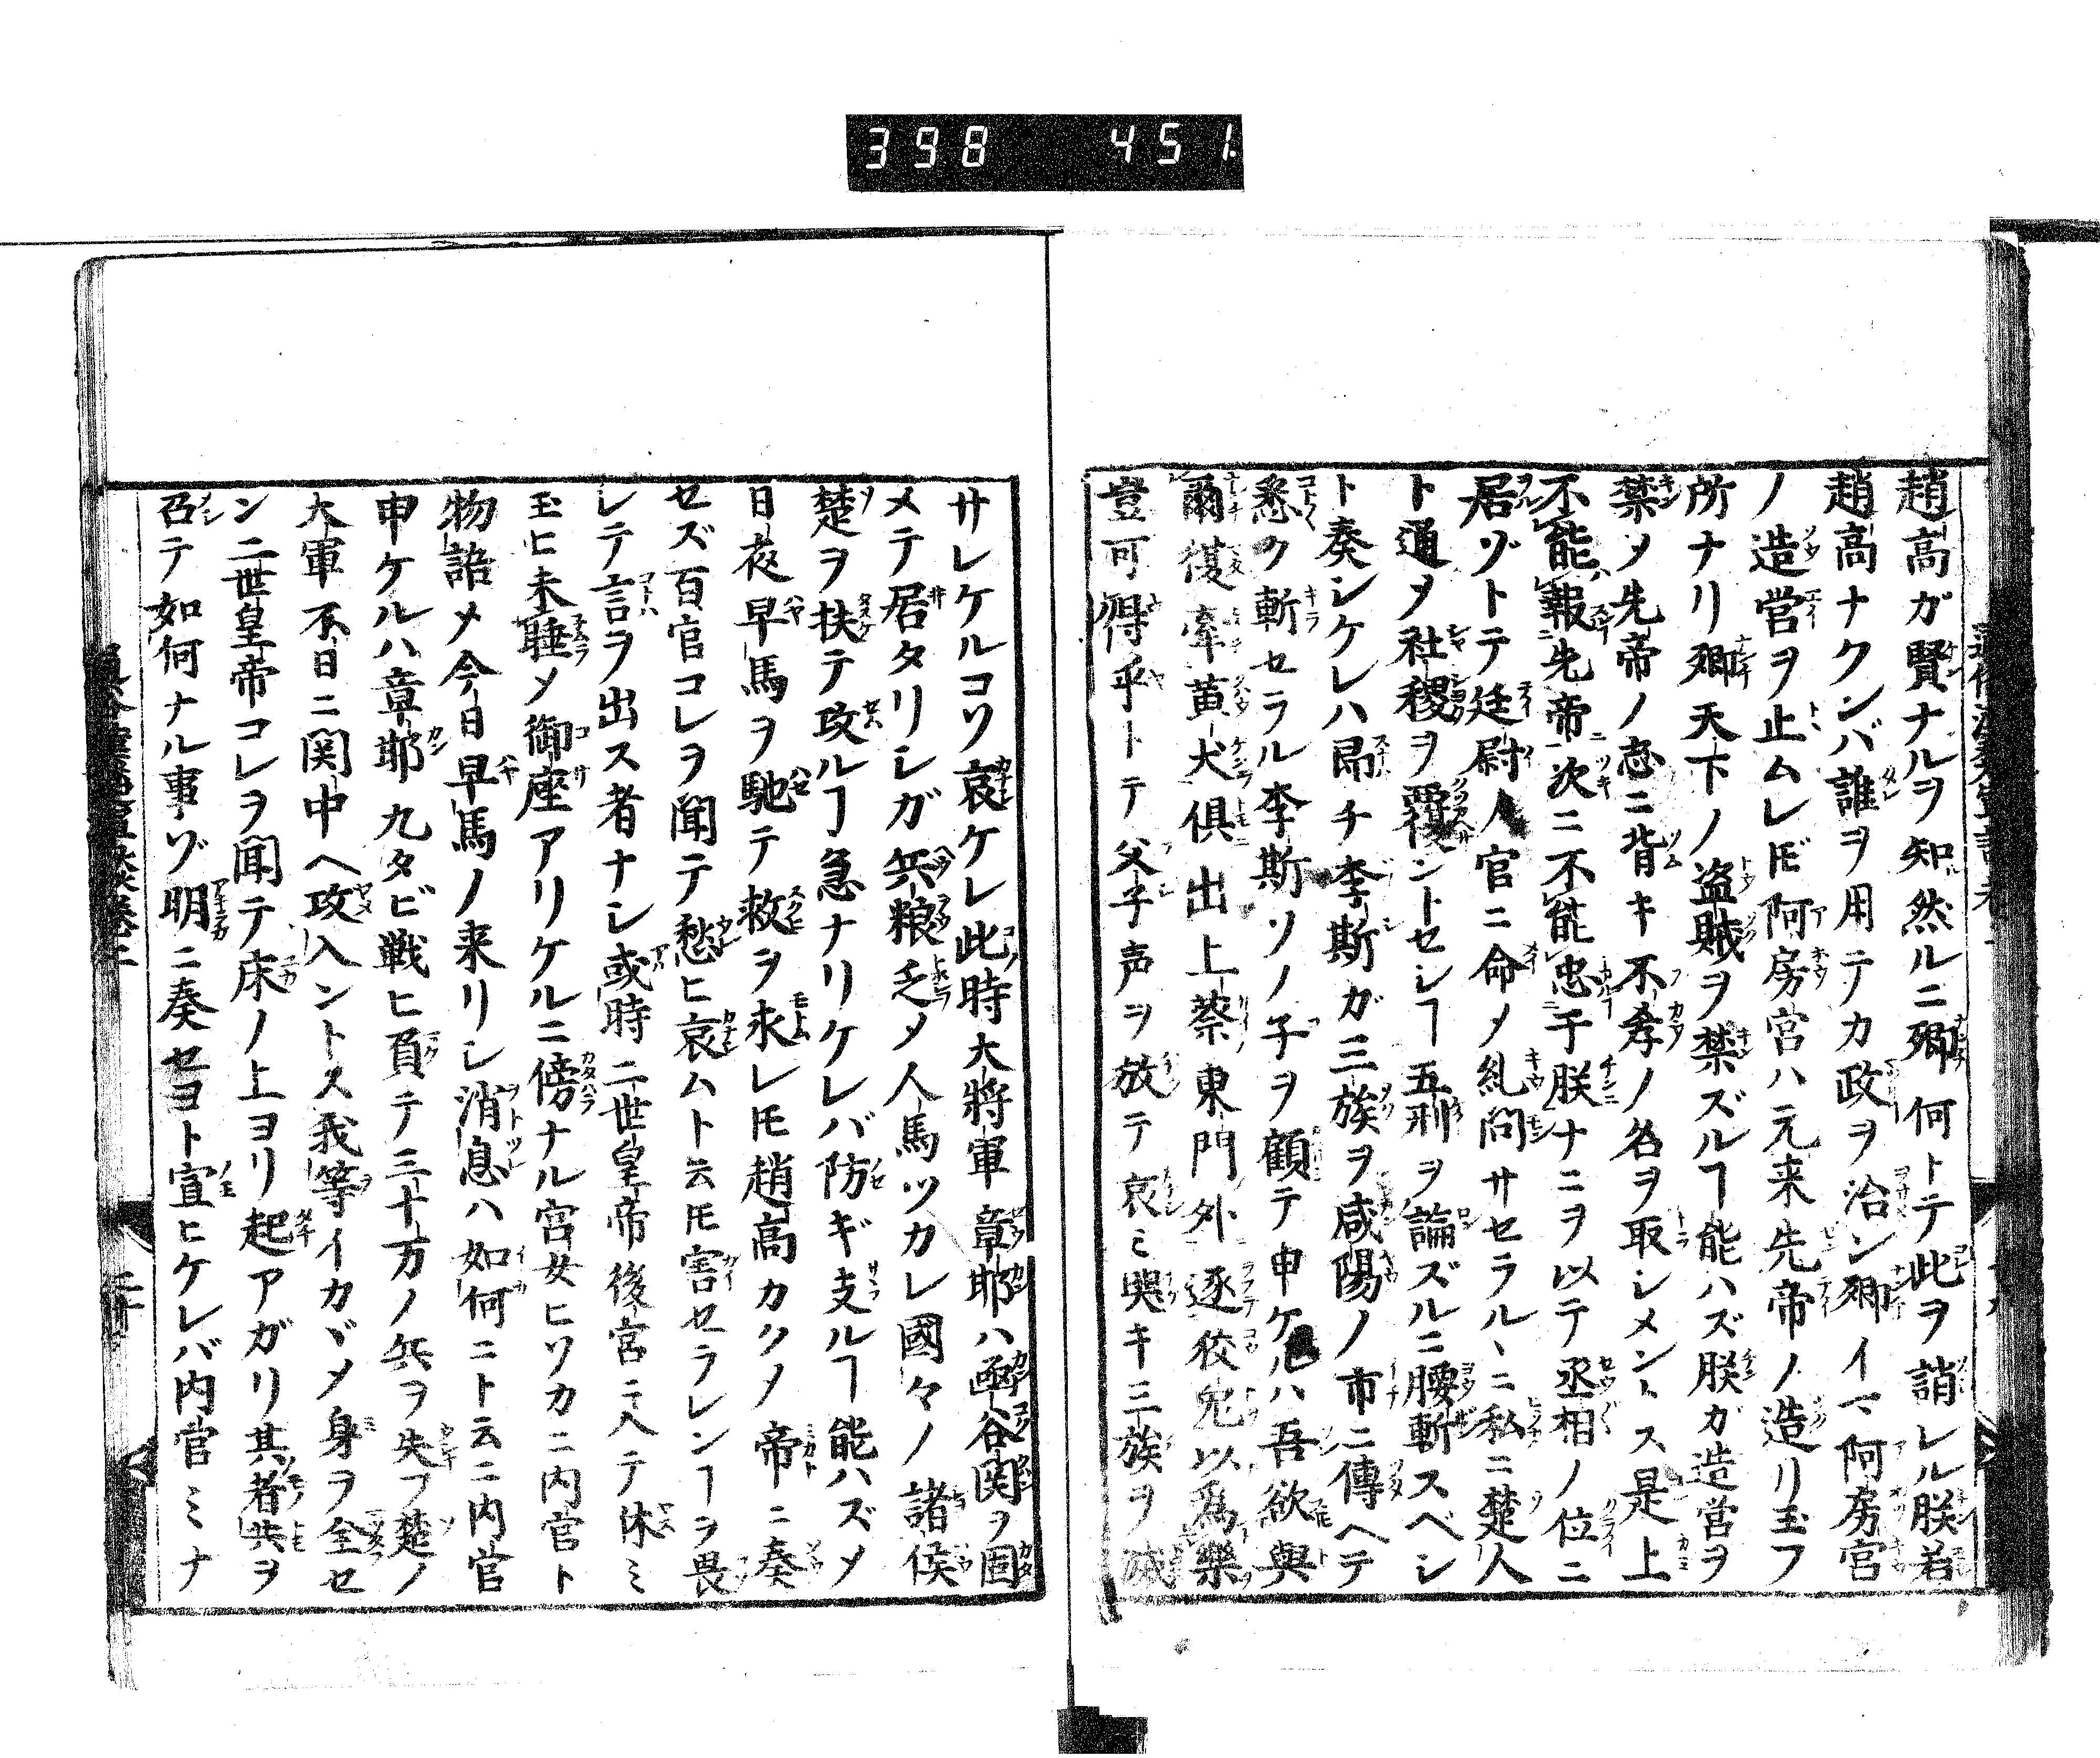 398 451
趙高ガ賢ナルヲ知然ルニ卿何トテ此ヲ誚レル朕若
趙高ナクンバ誰ヲ用テカ政ヲ治ン卿イマ阿房宮
ノ造営ヲ止ムレ𪜈阿房宮ハ元来先帝ノ造リ玉フ
所ナリ卿天下ノ盗賊ヲ禁ズルヿ能ハズ朕ガ造営ヲ
禁メ先帝ノ志ニ背キ不孝ノ名ヲ取シメントス是上
不能報先帝次ニ不能忠于朕ナニヲ以テ丞相ノ位ニ
居ゾトテ廷尉ノ官ニ命メ糺問サセラルヽニ私ニ楚人
ト通メ社稷ヲ覆ントセシヿ五刑ヲ論ズルニ腰斬スベシ
ト奏シケレハ即チ李斯ガ三族ヲ咸陽ノ市ニ傳ヘテ
悉ク斬セラル李斯ソノ子ヲ顧テ申ケルハ吾欲與
爾復牽黄犬俱出上蔡東門外逐狡兎以爲樂
豈可得乎トテ父子声ヲ放テ哀ミ哭キ三族ヲ滅
サレケルコソ哀ケレ此時大將軍章邯ハ函谷関ヲ固
メテ居タリシガ兵粮乏メ人馬ツカレ國々ノ諸侯
楚ヲ扶テ攻ルヿ急ナリケレバ防ギ支ルヿ能ハズメ
日夜早馬ヲ馳テ救ヲ求レ𪜈趙高カクメ帝ニ奏
セズ百官コレヲ聞テ愁ヒ哀ムト云𪜈害セラレンヿヲ畏
レテ言ヲ出ス者ナシ或時二世皇帝後宮ニ入テ休ミ
玉ヒ未睡メ御座アリケルニ傍ナル宮女ヒソカニ内官ト
物語メ今日早馬ノ来リシ消息ハ如何ニト云ニ内官
申ケルハ章邯九タビ戦ヒ負テ三十万ノ兵ヲ失フ楚ノ
大軍不日ニ関中ヘ攻入ントス我等イカヾメ身ヲ全セ
ン二世皇帝コレヲ聞テ床ノ上ヨリ起アガリ其者共ヲ
召テ如何ナル事ゾ明ニ奏セヨト宣ヒケレバ内官ミナ